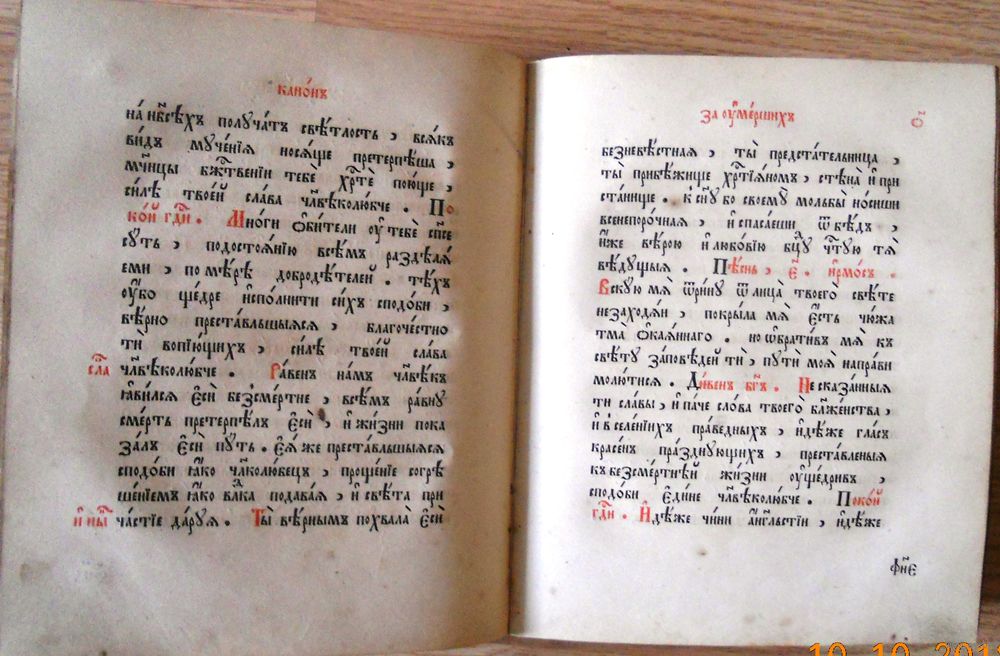 кано́нъ
на́ нб҃сѣхъ получа́тъ свѣ́тлость , вся́къ
ви́дъ муче́нія нося́ще претерпѣ́ша ,
мч҃нцы бж҃твеніи тебѣ̀ хрⷭ҇тѐ пою́ще ,
си́лѣ твоеѝ сла́ва чл҃вѣколю́бче . По
ко́й гдⷭ҇и . Мно́ги ѻ҆би́тели ᲂу҆ тебѐ сп҃се
су́ть , подостоѧ́нію всѣ́мъ раздѣлѧ́
еми , по мѣ́рѣ добродѣ́телей . тѣ́хъ
ᲂу҆́бо ще́дре и҆спо́лнити си́хъ сподо́би ,
вѣ́рно преста́вльшыѧсѧ , благоче́стно
ти̑ вопію́щихъ , си́лѣ твое́й сла́ва
сла́ чл҃вѣколю́бче . Ра́венъ на́мъ чл҃вѣ́къ
ꙗ҆ви́лсѧ є҆сѝ безсме́ртне , всѣ́мъ ра́вну
сме́рть претерпѣ́лъ є҆сѝ , и҆ жи́зни пока
за́лъ є҆сѝ пу́ть . є҆ѧ́же преста́вльшыѧсѧ
сподо́би ꙗ҆́ко чл҃колю́бецъ , проще́ніе согрѣ
ше́ніемъ ꙗ҆́ко влⷣка подава́ѧ , и҆ свѣ́та при
и҆ нн҃ѣ ча́стіе да́руѧ . Ты̀ вѣ́рнымъ похвала̀ є҆сѝ
за ᲂу҆ме́ршихъ
безневѣ́стнаѧ , ты̀ предста́тельница ,
ты̀ прибѣ́жище хрⷭ҇тїѧ́ном , стѣна̀ и҆ при
ста́нище . к сн҃у бо своему̀ мольбы̀ но́сиши
всенепоро́чнаѧ , и҆ спаса́еши ѿ бѣ́дъ ,
и҆́же вѣ́рою и҆ любо́вію бцⷣу чту́ю тѧ̀
вѣ́дущыѧ . Пѣ́снь , є҃ . і҆рмо́съ .
Вску́ю мѧ ѿри́ну ѿ лица̀ твоего̀ свѣ́те
незаходѧ́и , покры́ла мѧ є҆́сть чю́жа
тма̀ ѻ҆каѧ́ннаго . но ѡ҆брати́въ мѧ̀ къ
свѣ́ту за́повѣдей тѝ , путѝ моѧ̀ напра́ви
молю́тисѧ . Ди́венъ бг҃ъ . Несказа́нныѧ
ти сла́вы , и҆ па́че сло́ва твоего̀ бл҃же́нства ,
и҆ в селе́нїихъ пра́ведныхъ , и҆дѣ́же гла́съ
красе́нъ пра́зднующихъ , преста́вленыѧ
къ безсме́ртнѣй жи́зни ᲂу҆ще́дривъ ,
сподо́би є҆ди́не чл҃вѣколю́бче . Поко́й
гдⷭ҇и . И҆дѣ́же чи́ни а҆́нг҃льстіи , и҆дѣ́же
фн҃є